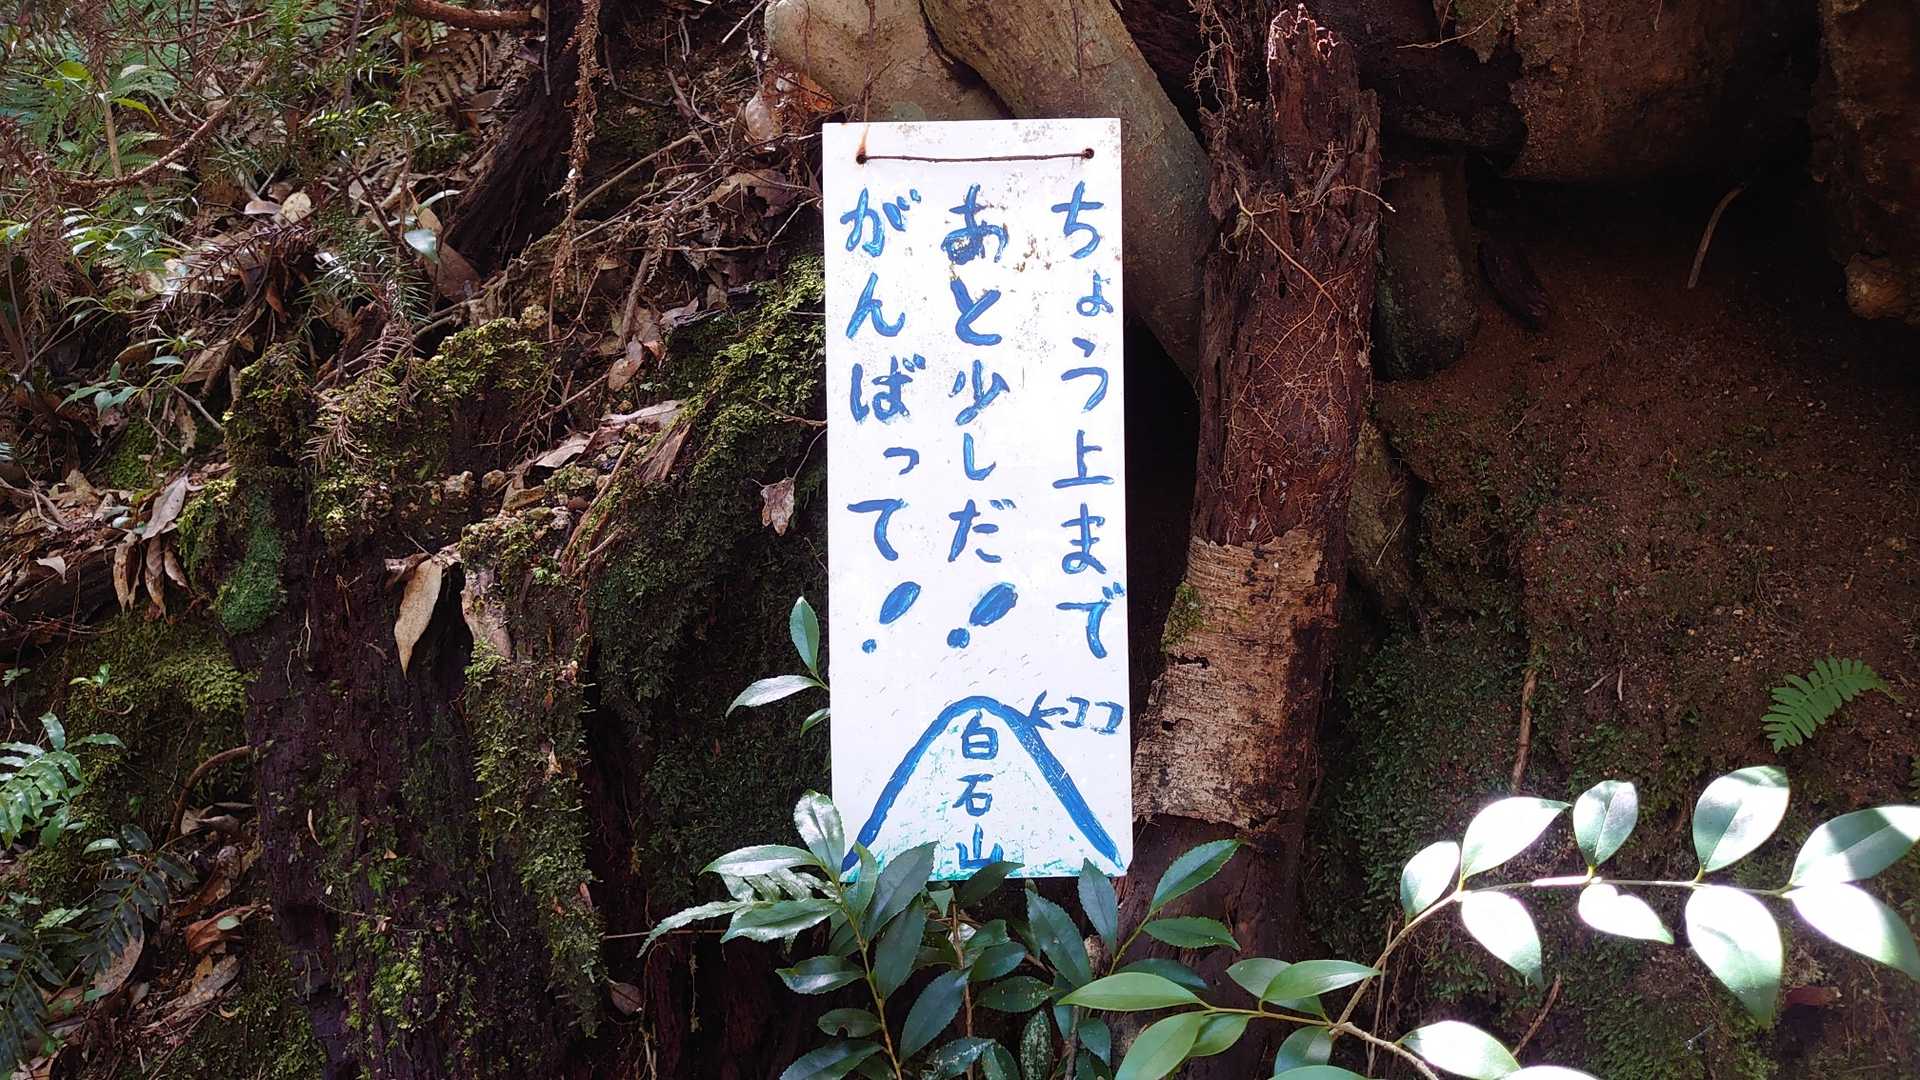 ちょう上まで
あと少しだ!
がんばって!
←ココ
白石山